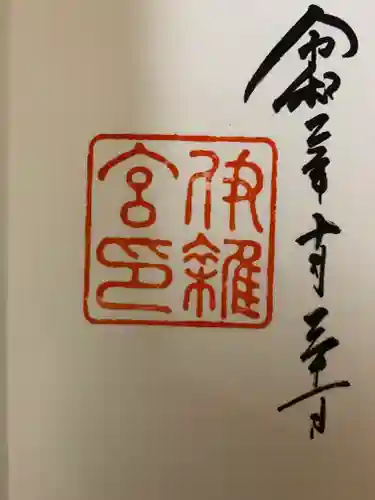 令和二年十月三十一日
伊雜
宮印